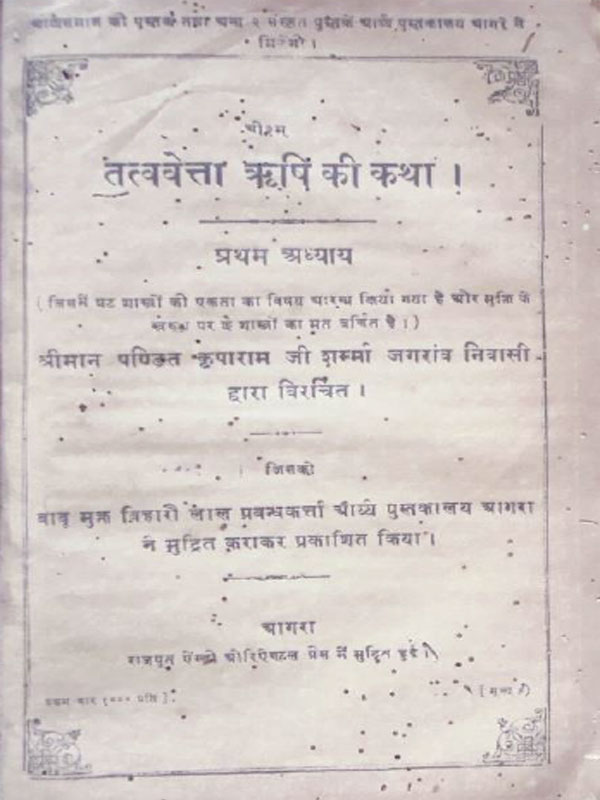 आर्य्यसमाज की पुस्तकें तथा अन्य २ संस्कृत पुस्तकें आर्य्य पुस्तकालय आगरे में
मिलेंगी ।
ओ३म्
तत्ववेत्ता ऋषि की कथा ।
प्रथम अध्याय
( जिसमें षट शास्त्रों की एकता का विषय आरम्भ किया गया है और मुक्ति के
स्वरूप पर के शास्त्रों का मत दर्शित है । )
श्रीमान पण्डित कृपाराम जी शर्म्मा जगरांव निवासी
द्वारा विरचित ।
जिसको
बाबू मुक्त बिहारी लाल प्रबन्धकर्त्ता आर्य्य पुस्तकालय आगरा
ने मुद्रित कराकर प्रकाशित किया ।
आगरा
राजपूत ऐंग्लो ओरिएण्टल प्रेस में मुद्रित हुई ।
प्रथम बार १००० प्रति ]
[ मूल्य